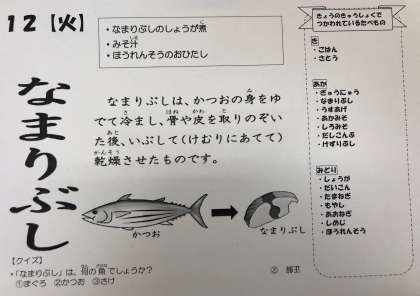 12【火】
・なまりぶしのしょうが煮
・みそ汁
・ほうれんそうのおひたし
なまりぶし
なまりぶしは、かつおの身をゆ
でて冷まし、骨や皮を取りのぞい
た後、いぶして(けむりにあてて)
乾燥させたものです。
かつお
なまりぶし
【クイズ】
・「なまりぶし」は、何の魚でしょうか?
①まぐろ ②かつお ③さけ
きょうのきゅうしょくで
つかわれているたべもの
き
・ごはん
・さとう
あか
・ぎゅうにゅう
・なまりぶし
・うすあげ
・あかみそ
・しろみそ
・だしこんぶ
・けずりぶし
みどり
・しょうが
・だいこん
・たまねぎ
・もやし
・あおねぎ
・しめじ
・ほうれんそう